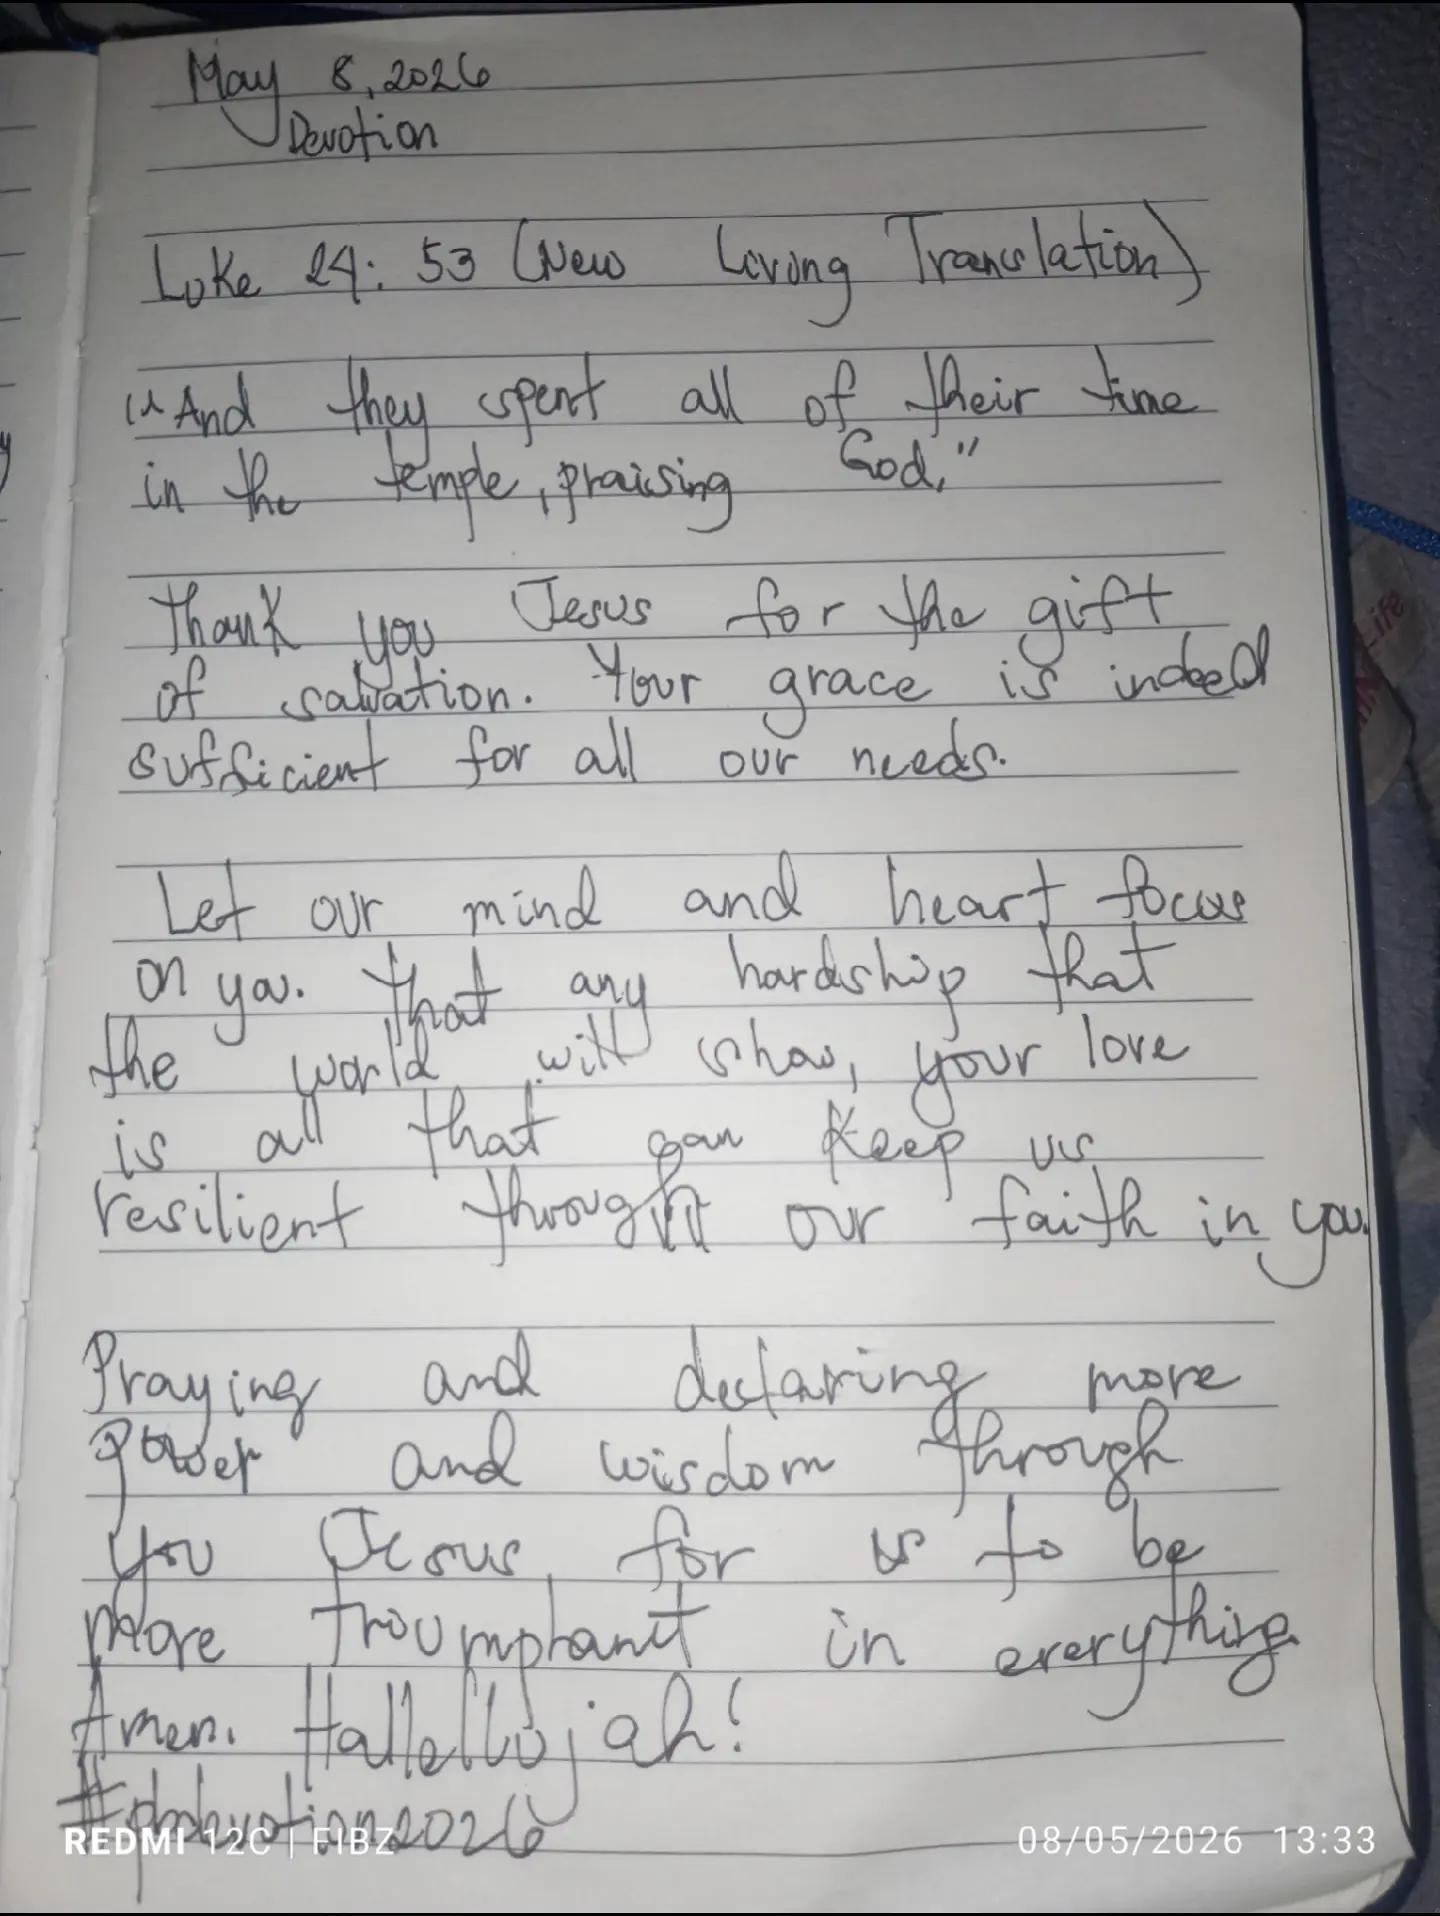 May 8, 2026
Devotion
Luke 24: 53 (New Living Translation)
"And they spent all of their time
in the temple, praising God."
Thank you Jesus for the gift
of salvation. Your grace is indeed
sufficient for all our needs.
Let our mind and heart focus
on you. That any hardship that
the world will show, your love
is all that can keep us
resilient through our faith in you.
Praying and declaring more
power and wisdom through
you Jesus, for us to be
more in everything.
Amen. Hallellujah!
REDMI 12C | FIBZ
08/05/2026 13:33